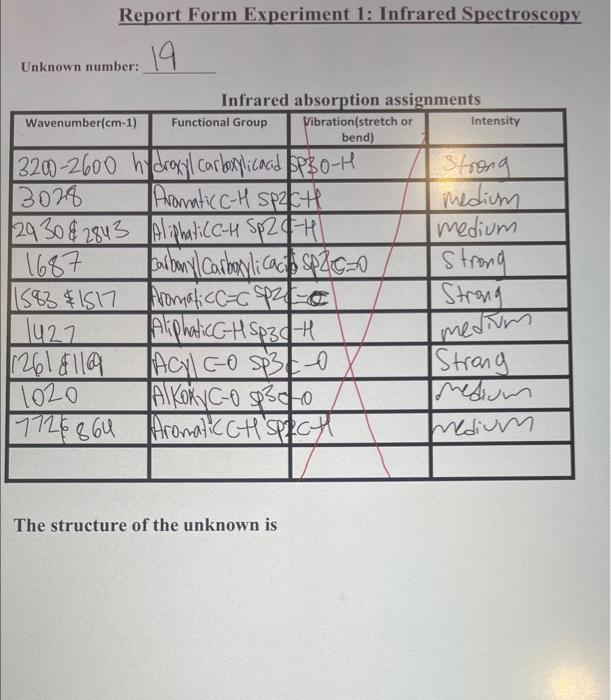 Report Form Experiment 1: Infrared Spectroscopy
Unknown number: 19
Infrared absorption assignments
Wavenumber(cm-1) Functional Group Vibration(stretch or bend) Intensity
3200-2600 hydroxyl Carboxylic acid SP3 O-H Strong
3028 Aromatic C-H SP2 C-H medium
2930 & 2843 Aliphatic C-H SP2 C-H medium
1687 Carbonyl Carboxylic acid SP2 C=O Strong
1583 & 1517 Aromatic C=C SP2 C=C Strong
1427 Aliphatic C-H SP3 C-H medium
1261 & 1169 Acyl C-O SP3 C-O Strong
1020 Alkoxy C-O SP3 C-O medium
772 & 864 Aromatic C-H SP2 C-H medium
The structure of the unknown is